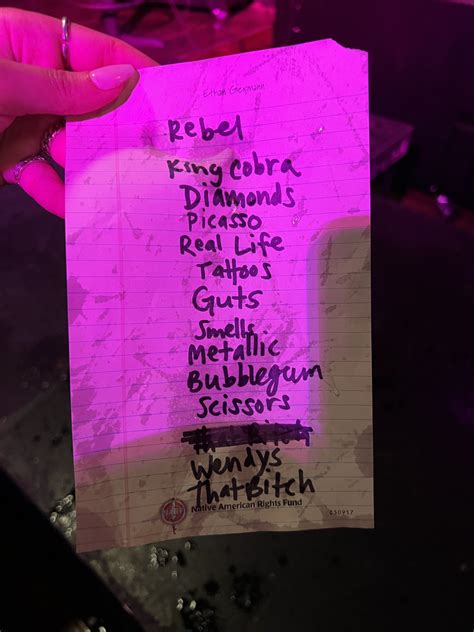 Ethan Gesmann
Rebel
King Cobra
Diamonds
Picasso
Real Life
Tattoos
Guts
Smells
Metallic
Bubblegum
Scissors
Bitch
Wendys
That Bitch
Native American Rights Fund